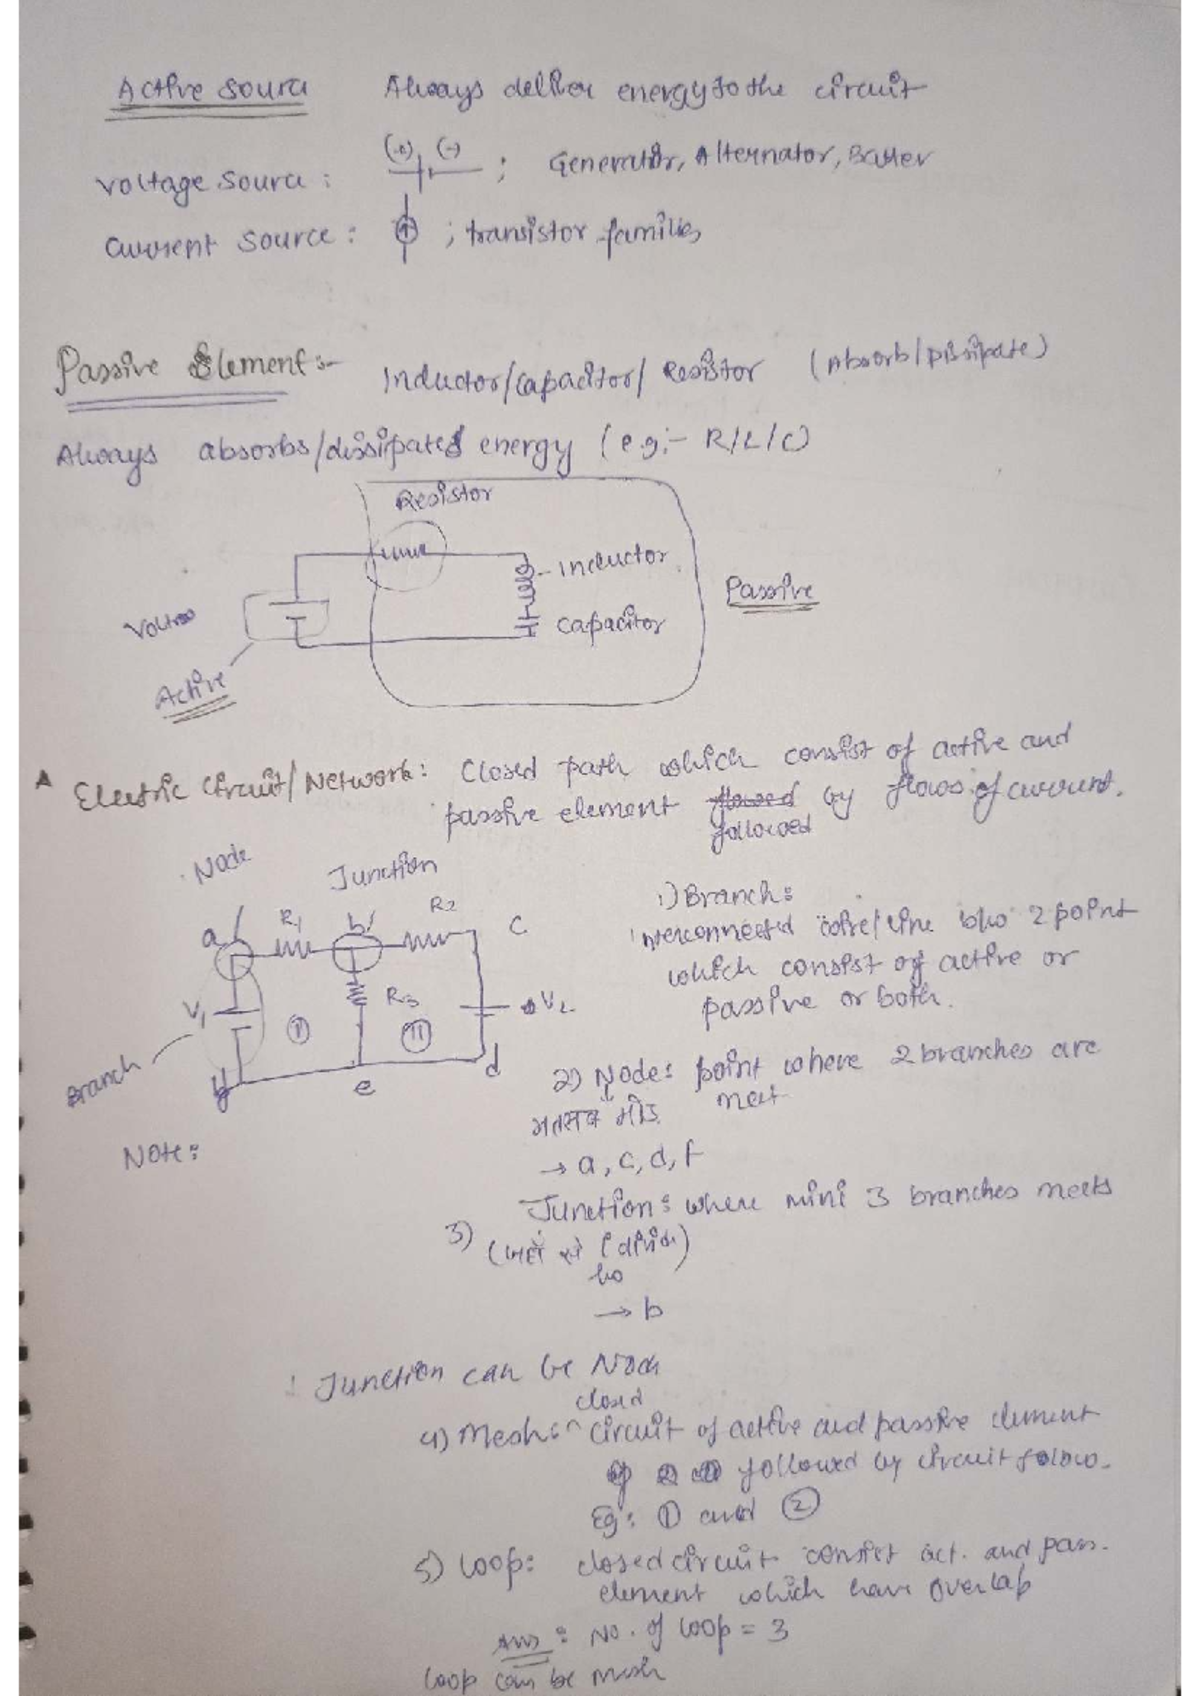 Active Source Always deliver energy to the circuit
(+) (-)
Voltage Source : ; Generator, Alternator, Batter
Current Source : ; transistor families
Passive Element :- Inductor/Capacitor/ Resistor (Absorb/Dissipate)
Always absorbs/dissipates energy (eg:- R/L/C)
Resistor
inductor
Passive
capacitor
Active
Electric Circuit/Network : Closed path which consist of active and
passive element flowed by flows of current.
followed
Node
Junction
a R1 b R2 c
1) Branch :
interconnected wire/line b/w 2 point
which consist of active or
passive or both.
V1 R3 V2
I II
Branch
e d
2) Node : point where 2 branches are
meet
मतलब मोड़
Note :
→ a, c, d, f
3) Junction : where mini 3 branches meets
(जहाँ से I divide)
ho
→ b
Junction can be Node
closed
4) Mesh : ^ circuit of active and passive element
followed by circuit follow.
Eg : ① and ②
5) Loop : closed circuit consist act. and pass.
element which have overlap
Ans : No. of loop = 3
Loop can be mesh